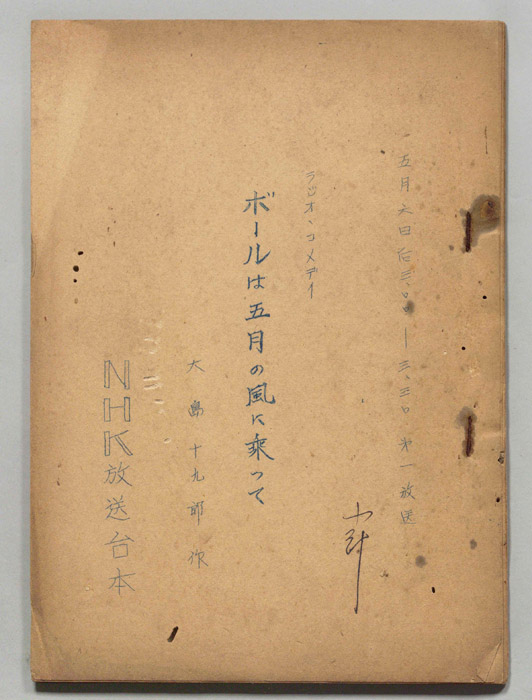 五月六日后三、〇〇 — 三、三〇 第一放送
ラジオ・コメデイ
ボールは五月の風に乗って
大島十九郎 作
NHK放送台本